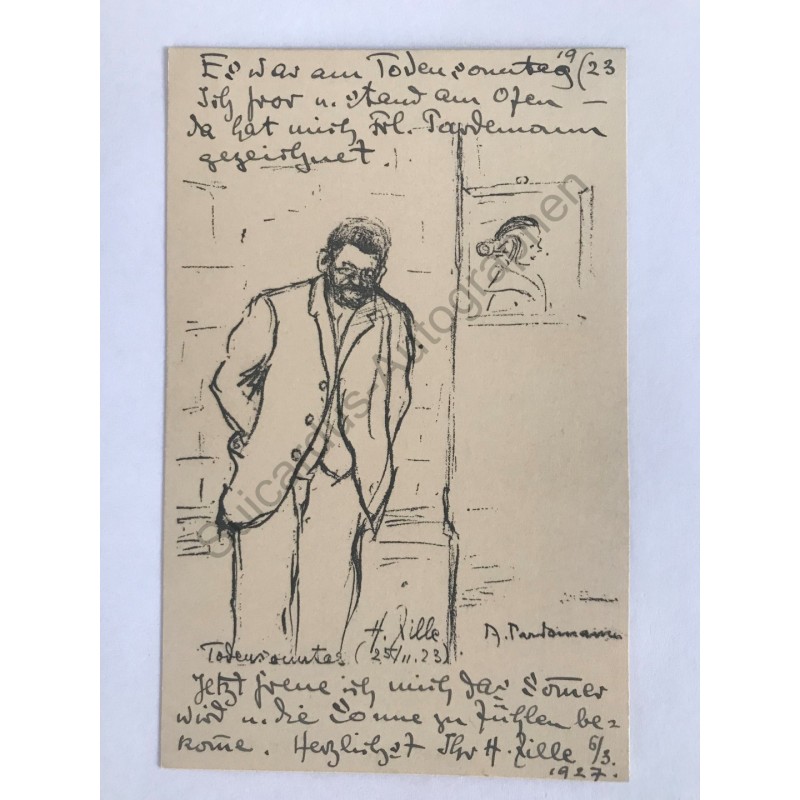 Es war am Todensonntag 19/23
Ich fror u. stand am Ofen –
da hat mich Frl. Pardemann
gezeichnet.
H. Zille A. Pardemann
Todensonntag (25/11.23)
Jetzt freue ich mich das Somer
wird u. die Sonne zu fühlen be=
kome. Herzlichst Ihr H. Zille 6/3.
1927.
Suicardius Autographen